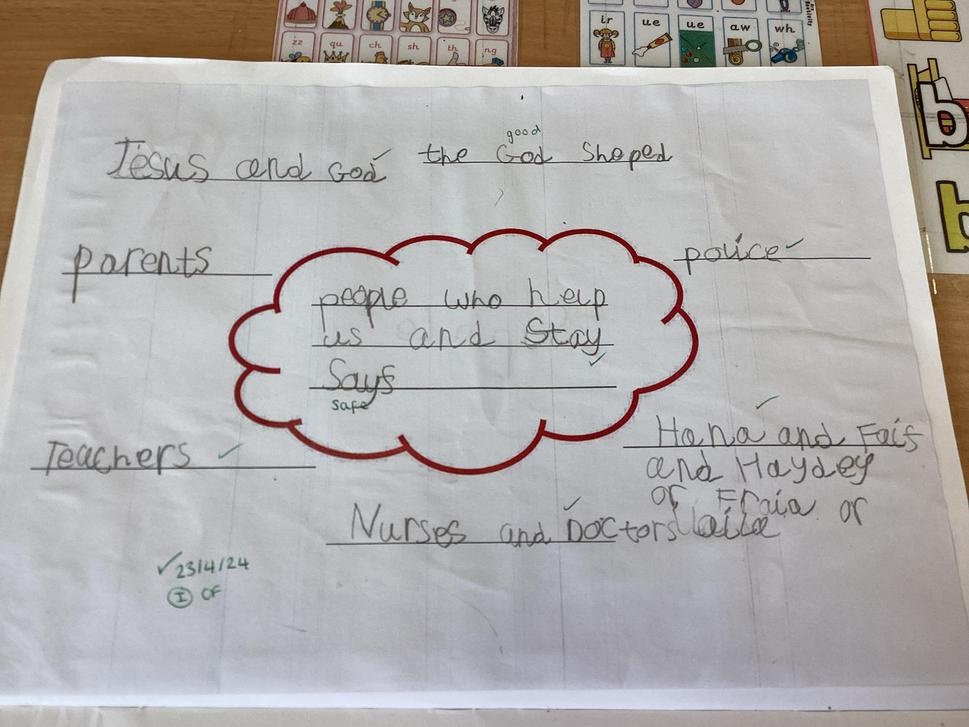 zz qu ch sh th ng
ir ue ue aw wh
b
b
good
Jesus and God the God Sheped
parents
police
people who help
us and Stay
Says
safe
Teachers
Hana and Fais
and Haydey
or Fraia or
laila
Nurses and Doctors
23/4/24
I OF